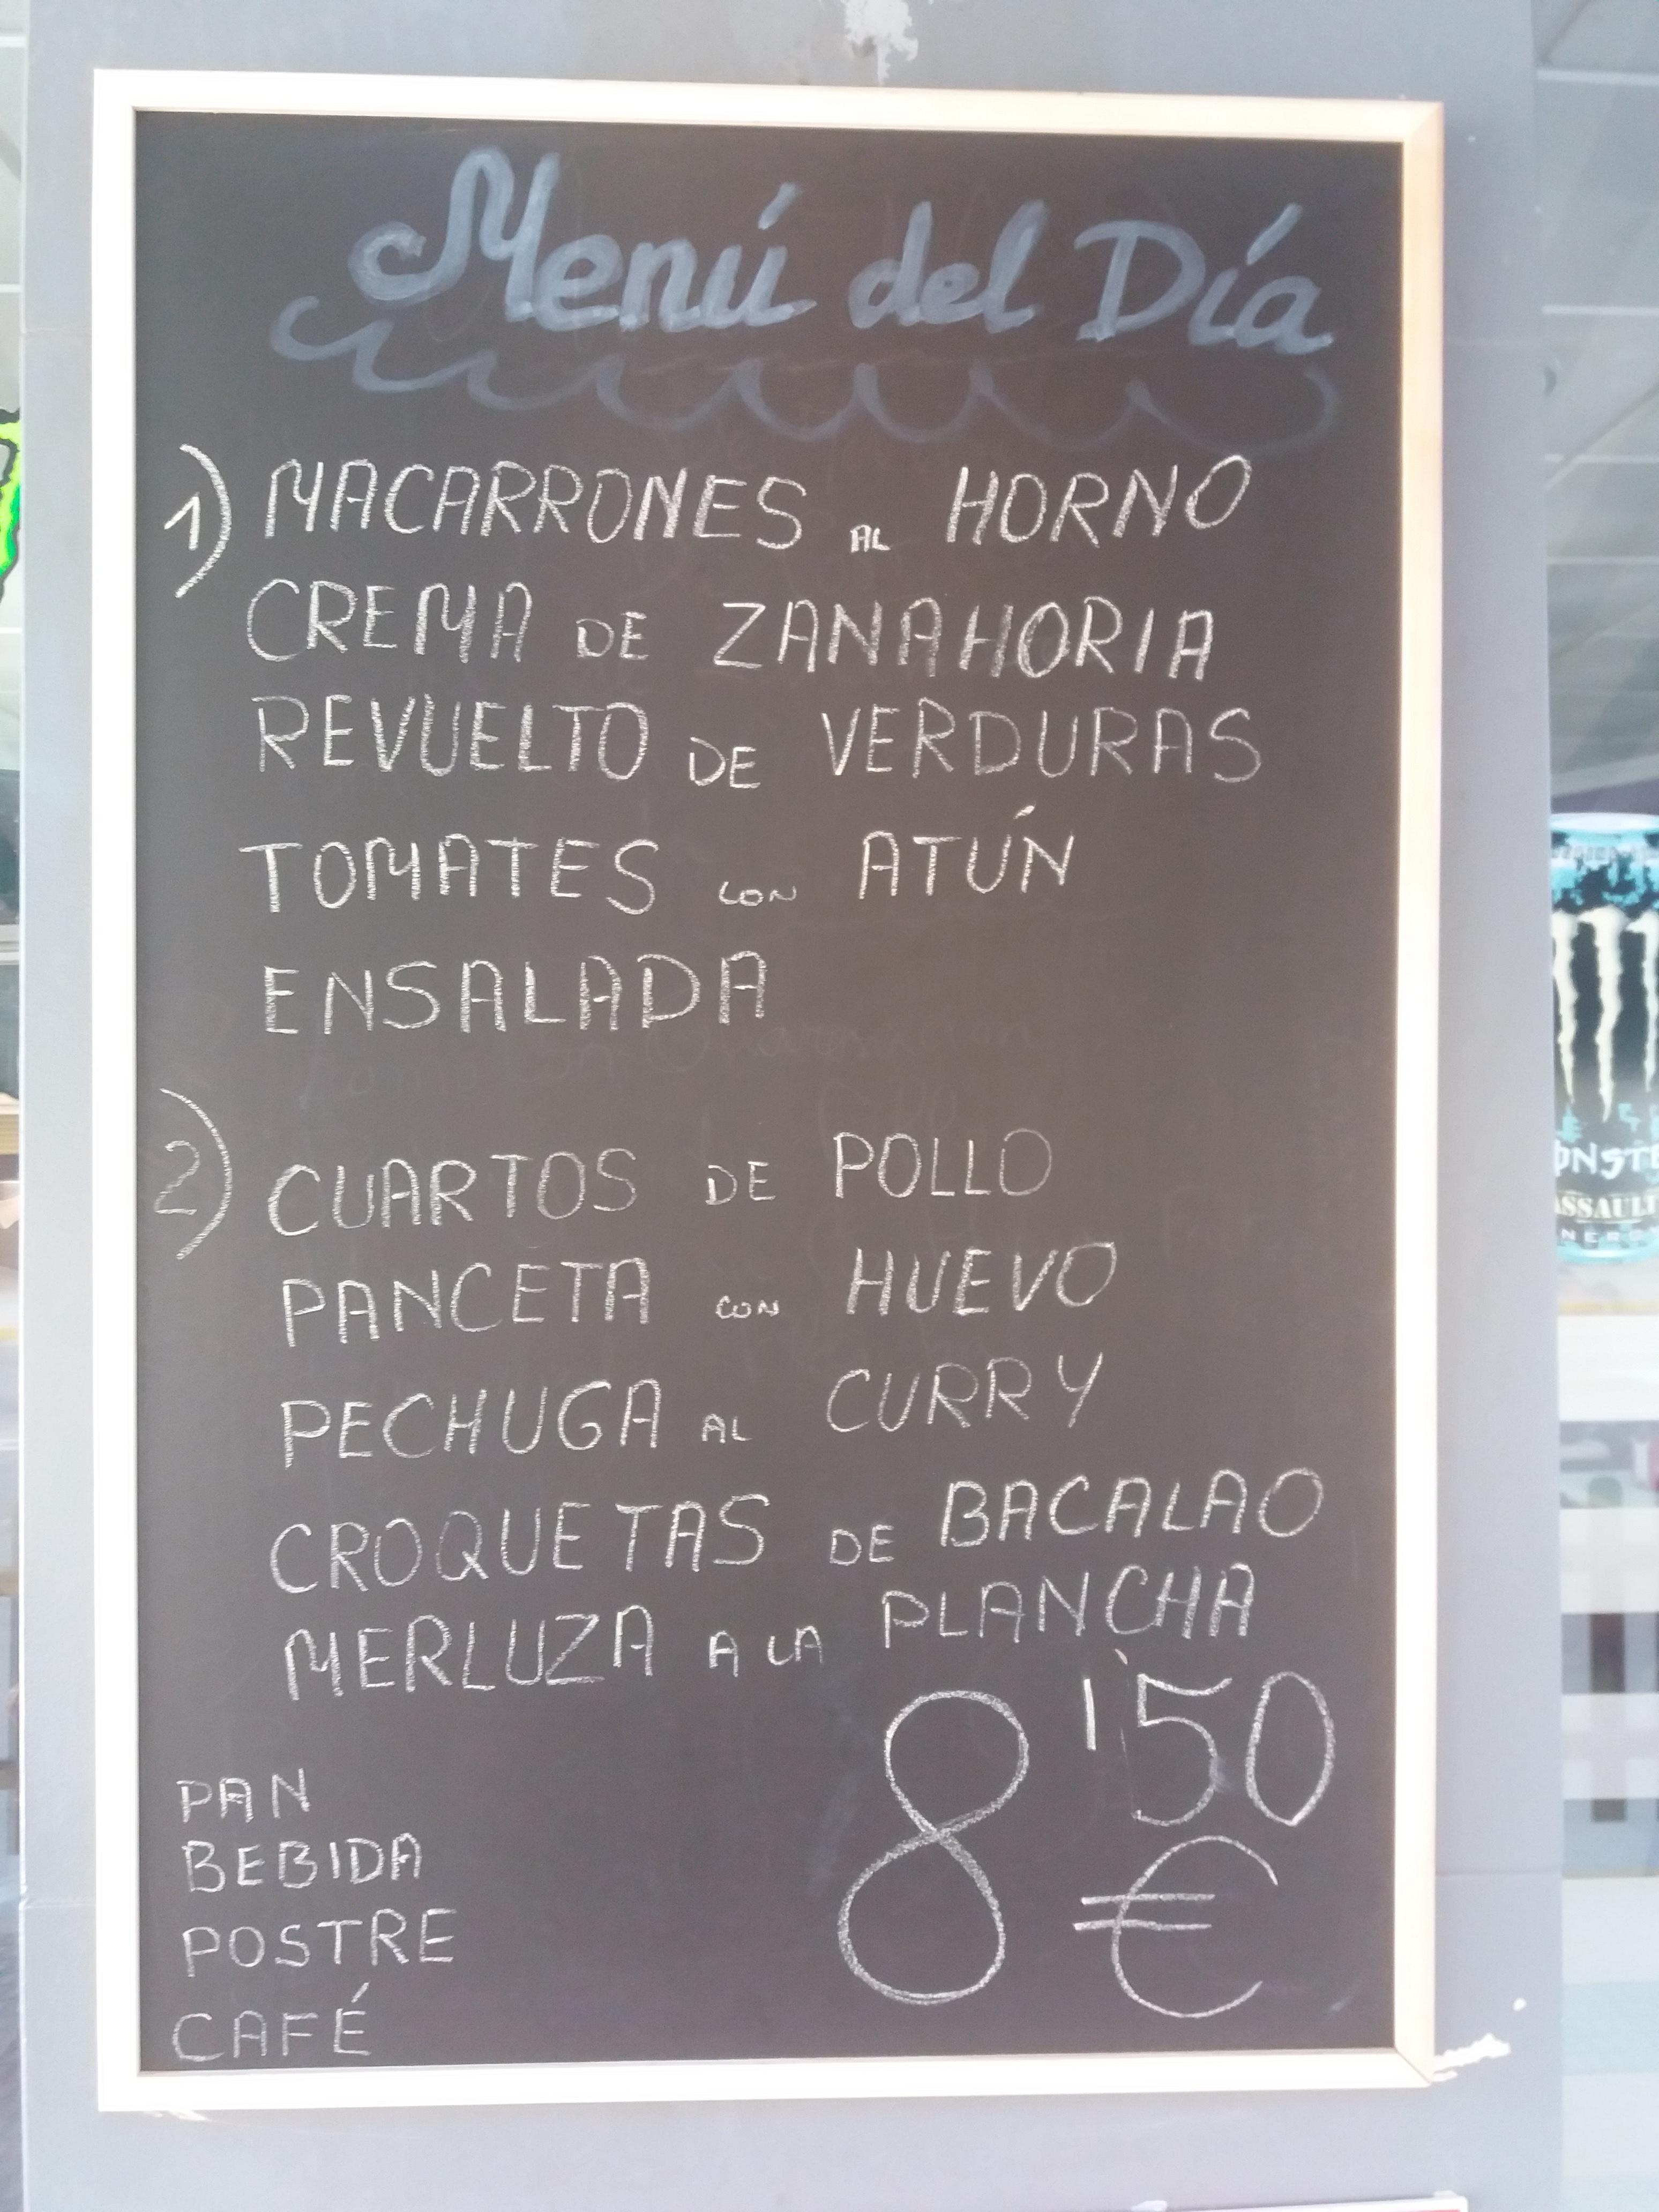 Menú del Día
1) MACARRONES AL HORNO
CREMA DE ZANAHORIA
REVUELTO DE VERDURAS
TOMATES CON ATÚN
ENSALADA
2) CUARTOS DE POLLO
PANCETA CON HUEVO
PECHUGA AL CURRY
CROQUETAS DE BACALAO
MERLUZA A LA PLANCHA
8'50
€
PAN
BEBIDA
POSTRE
CAFÉ
ASSAULT